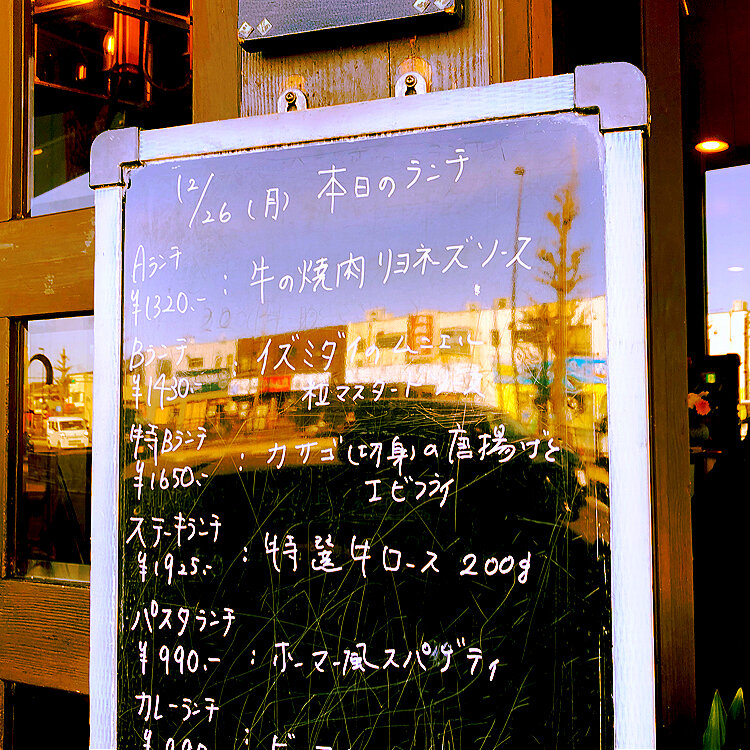 12/26(月) 本日のランチ
Aランチ
¥1320.- : 牛の焼肉 リヨネーズソース
Bランチ : イズミダイのムニエル
¥1430.- 粒マスタード
特Bランチ
¥1650.- : カサゴ(切身)の唐揚げと
エビフライ
ステーキランチ
¥1925.- : 特選牛ロース 200g
パスタランチ
¥990.- : ホーマー風スパゲティ
カレーランチ